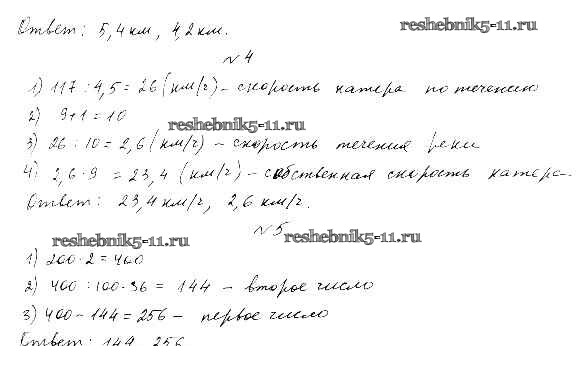 Ответ: 5,4 км, 4,2 км.
reshebnik5-11.ru
№ 4
1) 117 : 4,5 = 26 (км/ч) – скорость катера по течению
2) 9+1 = 10
reshebnik5-11.ru
3) 26 : 10 = 2,6 (км/ч) – скорость течения реки
4) 2,6 · 9 = 23,4 (км/ч) – собственная скорость катера.
Ответ: 23,4 км/ч, 2,6 км/ч.
№ 5
reshebnik5-11.ru
reshebnik5-11.ru
1) 200 · 2 = 400
2) 400 : 100 · 36 = 144 – второе число
3) 400 – 144 = 256 – первое число
Ответ: 144 256